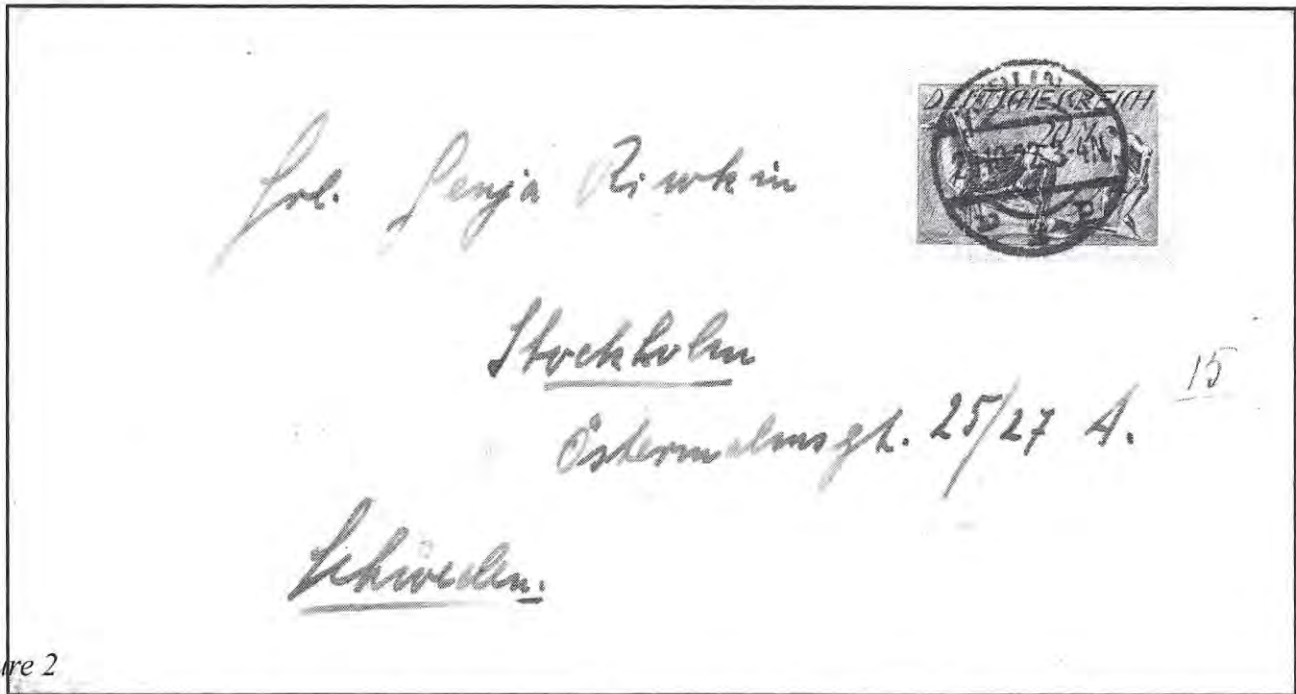 DEUTSCHES REICH
20 M
Frl. Senja Riwkin
Stockholm
15
Östermalmsgt. 25/27 A.
Schweden.
re 2